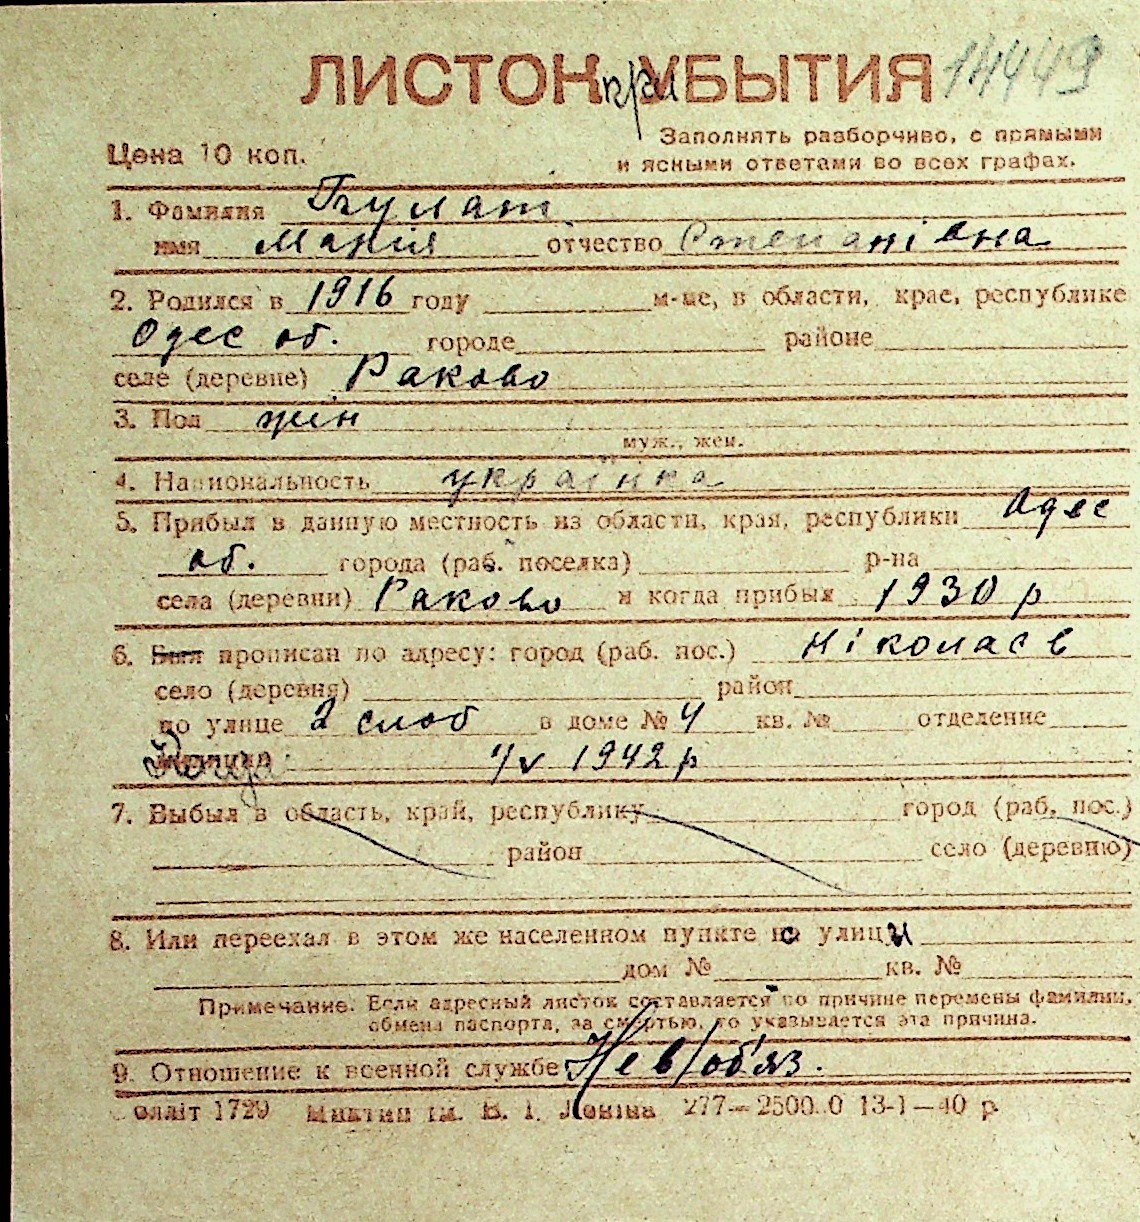 ЛИСТОК при УБЫТИЯ 14449
Цена 10 коп.
Заполнять разборчиво, с прямыми
и ясными ответами во всех графах.
1. Фамилия Булат
имя Марія отчество Степанівна
2. Родился в 1916 году м-це, в области, крае, республике
Одес об. городе районе
селе (деревне) Раково
3. Пол жін
муж., жен.
4. Национальность українка
5. Прибыл в данную местность из области, края, республики Одес
об. города (раб. поселка) р-на
села (деревни) Раково и когда прибыл 1930 р
6. Был прописан по адресу: город (раб. пос.) Ніколаєв
село (деревня) район
по улице 2 слоб в доме № 4 кв. № отделение
Когда 1/V 1942 р
7. Выбыл в область, край, республику город (раб. пос.)
район село (деревню)
8. Или переехал в этом же населенном пункте с улицы
дом № кв. №
Примечание. Если адресный листок составляется по причине перемены фамилии,
обмена паспорта, за смертью, то указывается эта причина.
9. Отношение к военной службе Нев/об'яз.
оллiт 1729 ім. В. І. Леніна 277—2500.0 13-1—40 р